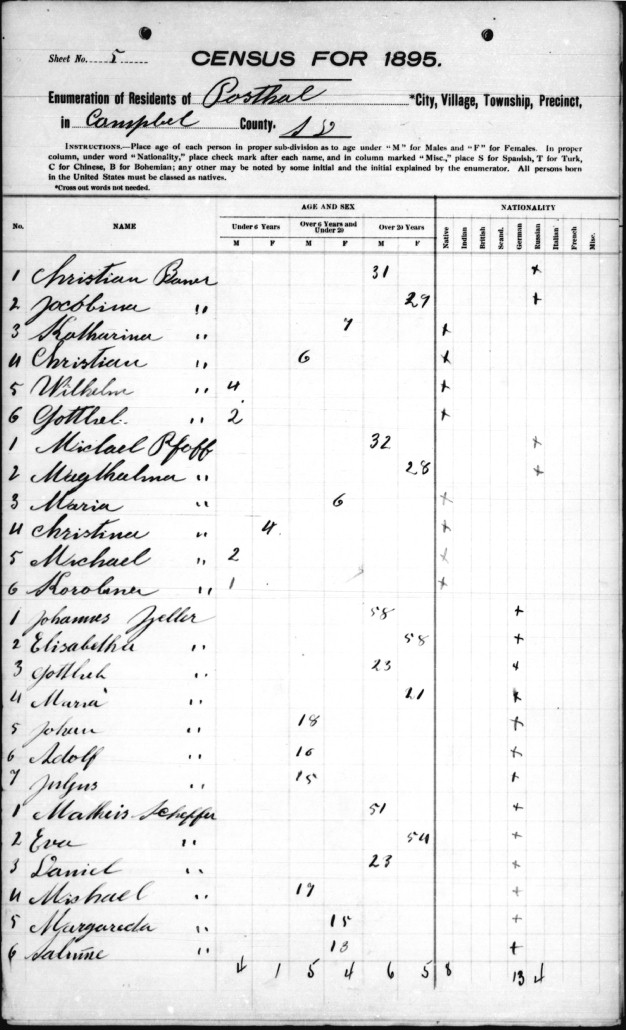 Sheet No. 5
CENSUS FOR 1895.
Enumeration of Residents of Posthal *City, Village, Township, Precinct,
in Campbel County. S D
INSTRUCTIONS.—Place age of each person in proper sub-division as to age under "M" for Males and "F" for Females. In proper
column, under word "Nationality," place check mark after each name, and in column marked "Misc., place S for Spanish, T for Turk,
C for Chinese, B for Bohemian; any other may be noted by some initial and the initial explained by the enumerator. All persons born
in the United States must be classed as natives.
*Cross out words not needed.
AGE AND SEX NATIONALITY
No. NAME Under 6 Years Over 6 Years and Under 20 Over 20 Years Native Indian British Scand. German Russian Italian French Misc.
M F M F M F
1 Christian Bauer 31 +
2 Jacobina " 29 +
3 Katharina " 7 +
4 Christian " 6 +
5 Wilhelm " 4 +
6 Gottlieb " 2 +
1 Michael Pfaff 32 +
2 Magthalena " 28 +
3 Maria " 6 +
4 Christina " 4 +
5 Michael " 2 +
6 " 1 +
1 Johannes Zeller 58 +
2 Elisabetha " 58 +
3 Gottlieb " 23 +
4 Maria " 21 +
5 Johan " 18 +
6 Adolf " 16 +
7 Julyus " 15 +
1 Matheis Scheffer 51 +
2 Eva " 54 +
3 Daniel " 23 +
4 Mishael " 17 +
5 Margareda " 15 +
6 Salmine " 13 +
4 1 5 4 6 5 8 13 4